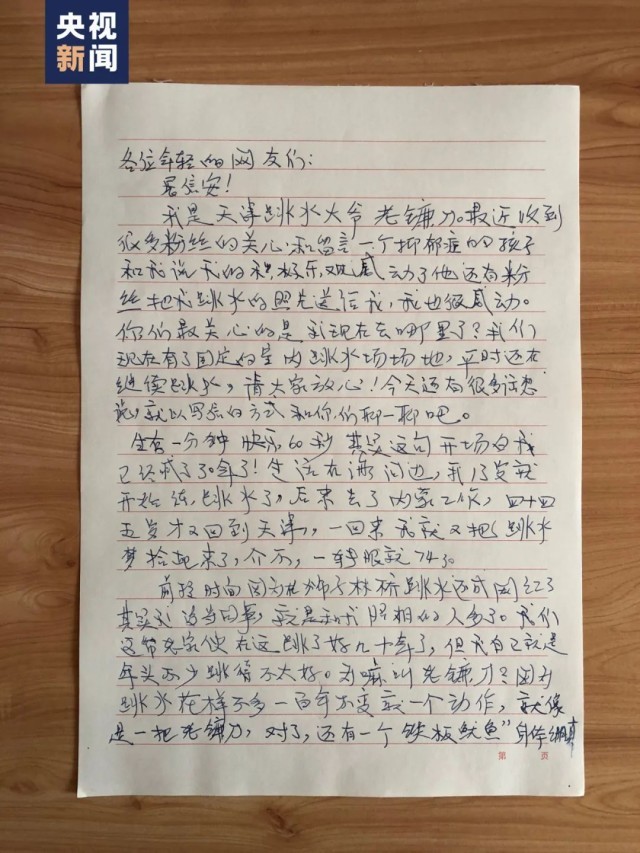 央视
新闻
各位年轻的网友们：
见信安！
我是天津跳水大爷老镰刀。最近收到
很多粉丝的关心和留言一个抑郁症的孩子
和我说我的积极乐观感动了他还有粉
丝把我跳水的照片送给我，我也很感动。
你们最关心的是我现在去哪里了？我们
现在有了固定的室内跳水场场地，平时还在
继续跳水，请大家放心！今天还有很多话想
说，就以写信的方式和你们聊一聊吧。
生命一分钟快乐60秒其实这句开场白我
已经喊了30年了！生活在海河边，我13岁就
开始练跳水了，后来去了内蒙工作，四十四
五岁才又回到天津，一回来我就又把跳水
梦拾起来了，介不，一转眼就74了。
前段时间因为在狮子林桥跳水还成网红了
其实没当回事，就是和我照相的人多了。我们
这帮老家伙在这跳了好几十年了，但我自己就是
年头不少跳得不太好。为嘛叫老镰刀？因为
跳水花样不多一百年不变就一个动作，就像
是一把老镰刀，对了，还有一个铁板鱿鱼”身体绷
第 页